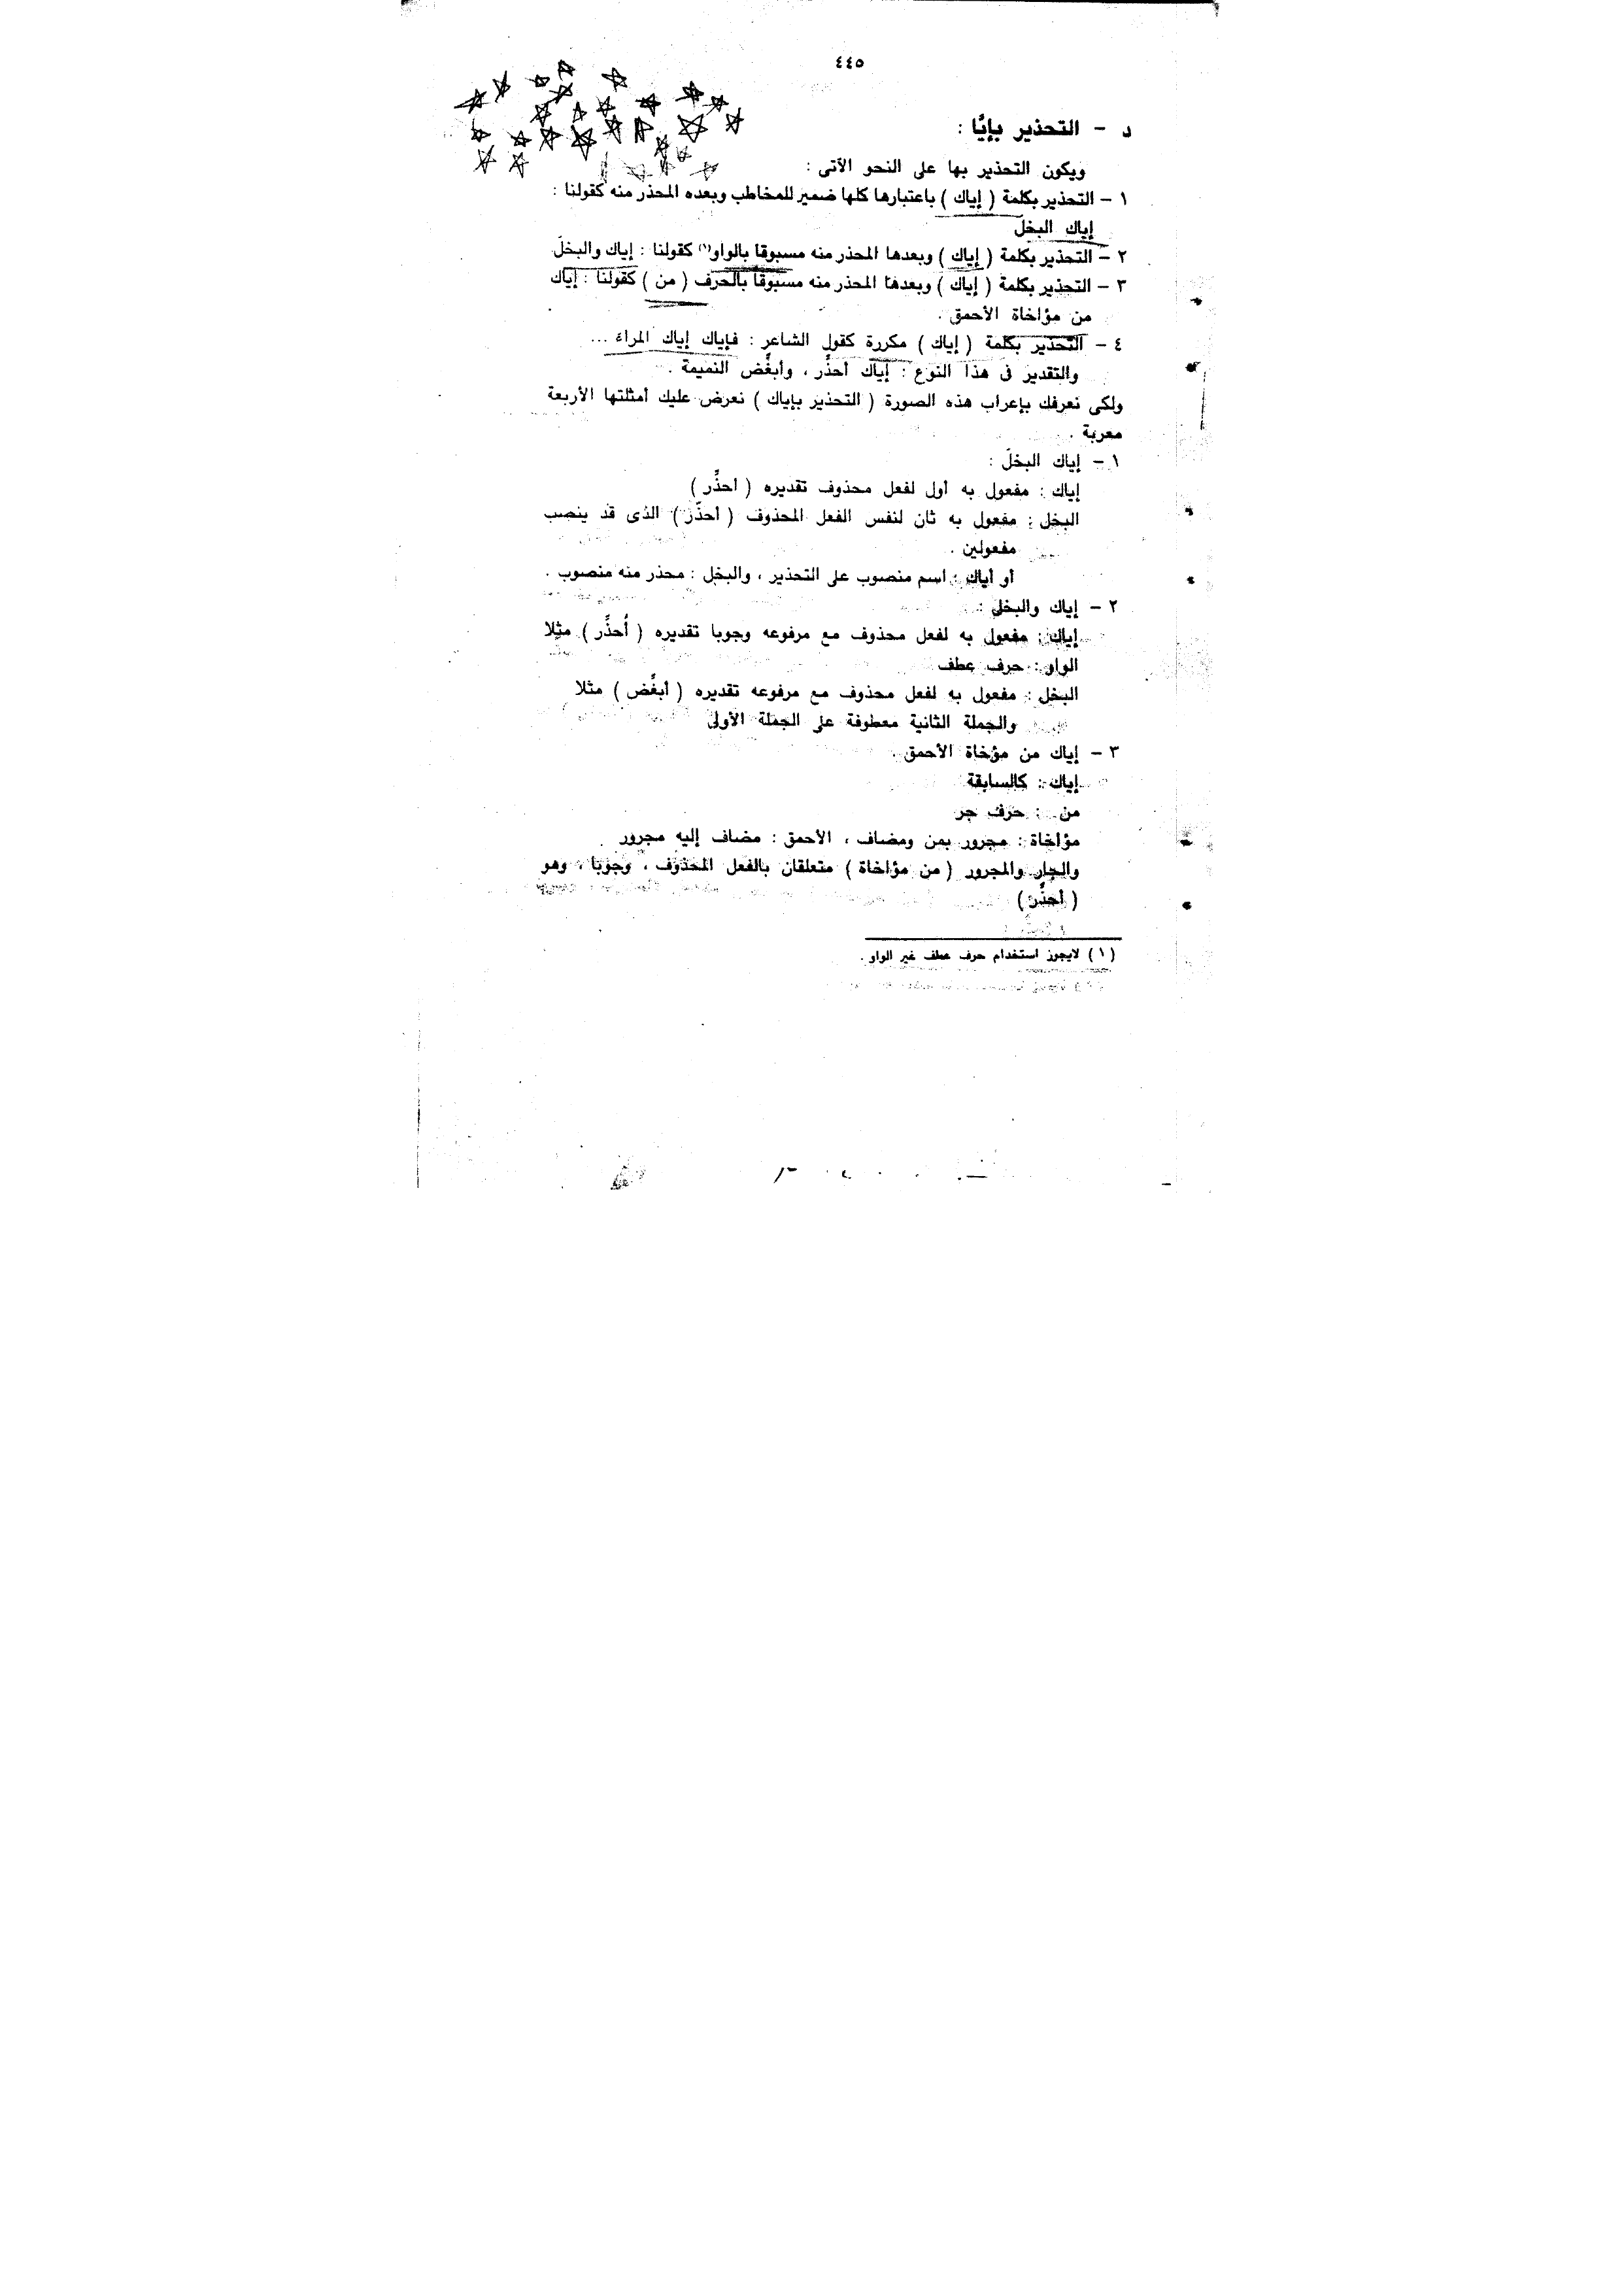 ٤٤٥
د - التحذير بإيّا :
ويكون التحذير بها على النحو الآتى :
١ - التحذير بكلمة ( إياك ) باعتبارها كلها ضمير للمخاطب وبعده المحذر منه كقولنا :
إياك البخلَ
٢ - التحذير بكلمة ( إياك ) وبعدها المحذر منه مسبوقا بالواو(١) كقولنا : إياك والبخلَ
٣ - التحذير بكلمة ( إياك ) وبعدها المحذر منه مسبوقا بالحرف ( من ) كقولنا : إياك
من مؤاخاة الأحمق .
٤ - التحذير بكلمة ( إياك ) مكررة كقول الشاعر : فإياك إياك المراء ...
والتقدير فى هذا النوع : إياك أحذِّر ، وأبغِّض النميمة .
ولكى نعرفك بإعراب هذه الصورة ( التحذير بإياك ) نعرض عليك أمثلتها الأربعة
معربة .
١ - إياك البخلَ :
إياك : مفعول به أول لفعل محذوف تقديره ( أحذِّر )
البخل : مفعول به ثان لنفس الفعل المحذوف ( أحذّر ) الذى قد ينصب
مفعولين .
أو أياك : اسم منصوب على التحذير ، والبخل : محذر منه منصوب .
٢ - إياك والبخل :
إياك : مفعول به لفعل محذوف مع مرفوعه وجوبا تقديره ( أُحذِّر ) مثلا
الواو : حرف عطف
البخل : مفعول به لفعل محذوف مع مرفوعه تقديره ( أبغِّض ) مثلا
والجملة الثانية معطوفة على الجملة الأولى
٣ - إياك من مؤخاة الأحمق .
إياك : كالسابقة
من : حرف جر
مؤاخاة : مجرور بمن ومضاف ، الأحمق : مضاف إليه مجرور
والجار والمجرور ( من مؤاخاة ) متعلقان بالفعل المحذوف ، وجوبا ، وهو
( أحذِّر )
( ١ ) لايجوز استخدام حرف عطف غير الواو .